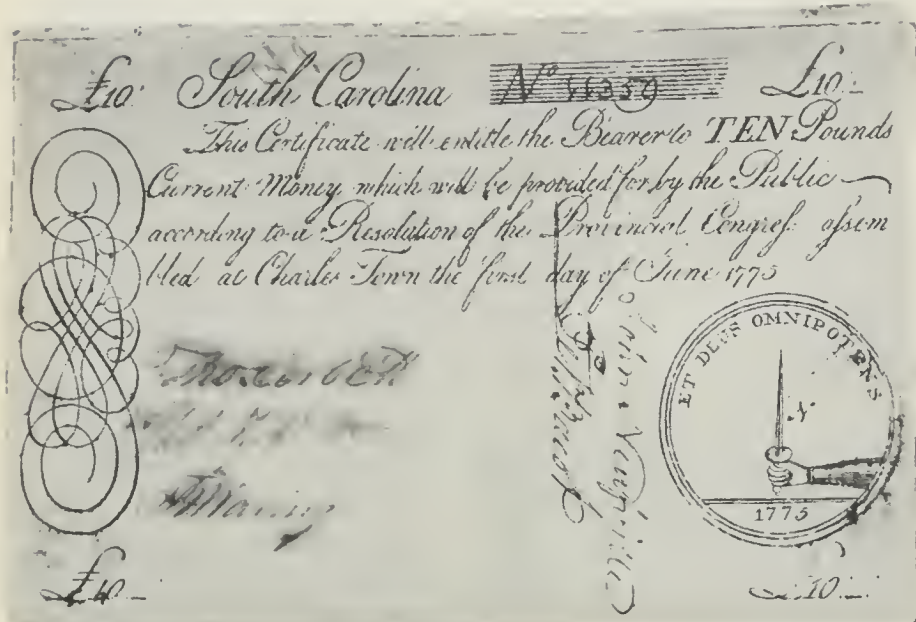 £10: South Carolina No 11350 £10:
This Certificate will entitle the Bearer to TEN Pounds
Current Money which will be provided for by the Public
according to a Resolution of the Provincial Congress assem
bled at Charles Town the first day of June 1775
ET DEUS OMNIPOTENS
1775
£10
£10